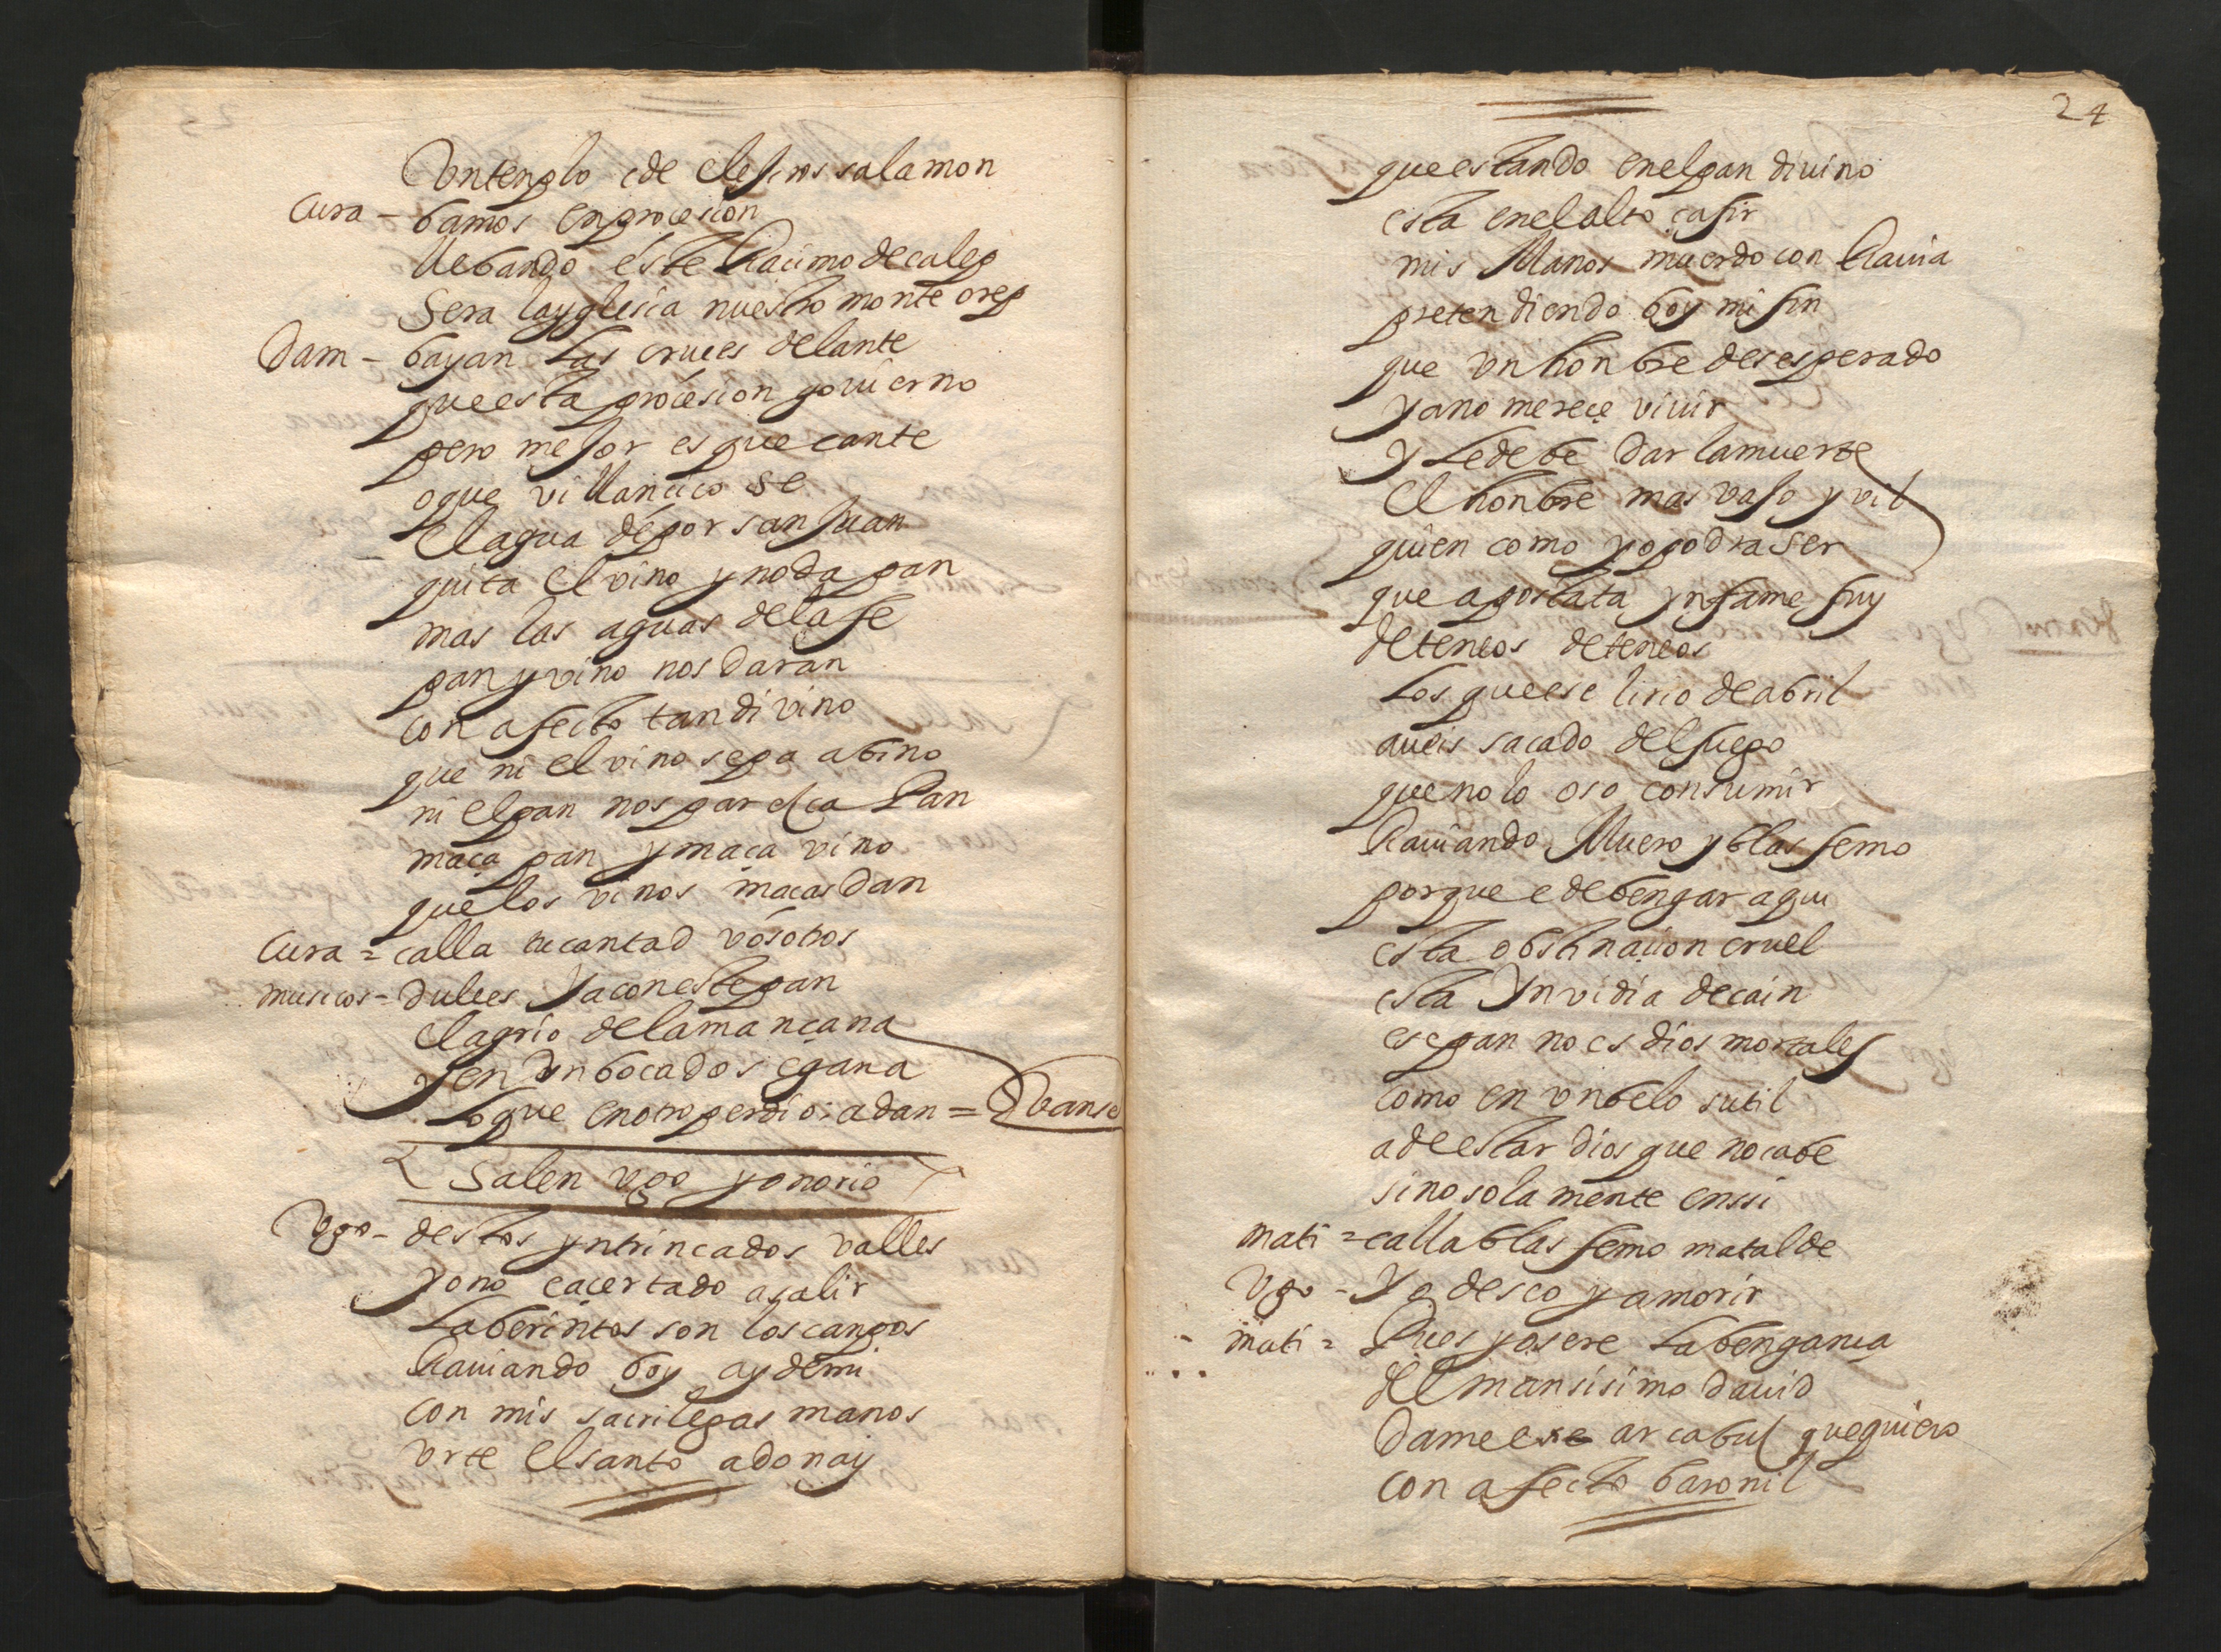 Vn tenplo ede elejiros salamon
Cura - bamos en procesion
llebando este Racimo de calep
Sera la yglesia nuestro monte orep
Dam - bayan las cruces delante
que esta procesion govierno
pero mejor es que cante
o que villancico se
el agua de por san juan
quita el vino y no da pan
mas las aguas de la fe
pan y vino nos daran
con afecto tan divino
que ni el vino sepa a bino
ni el pan nos paresca Pan
maça pan y maça vino
que los vinos maças dan
Cura = calla tu cantad vosotros
musicos = dulces Ya con este pan
el agrio de la mançana
Y en Vn bocado se gana
Lo que en otro perdio adan = Vanse
Salen vgo y onorio
Vgo - destos yntrincados valles
Yo no e acertado a salir
Laberintos son los canpos
Raviando boy ay de mi
con mis sacrilegas manos
vrte el santo adonay
24
que estando en el pan divino
esta en el alto çafir
mis Manos muerdo con Ravia
pretendiendo boy mi fin
que vn honbre desesperado
Ya no mereçe vivir
Y Le debe dar la muerte
el honbre mas vajo y vil
quien como yo podra ser
que apostata ynfame fuy
deteneos deteneos
Los que ese lirio de abril
aveis sacado del fuego
que no lo oso consumir
Raviando Muero y blasfemo
porque e de bengar aqui
esta obstinaçion cruel
esta Ynvidia de cain
ese pan no es dios mortales
como en vn belo sutil
a de estar dios que no cabe
sino solamente en ssi
mati = calla blasfemo matalde
Vgo - Yo deseo ya morir
mati = Pues yo sere La bengança
del mansisimo david
Dame ese arcabuz que quiero
con afecto baronil